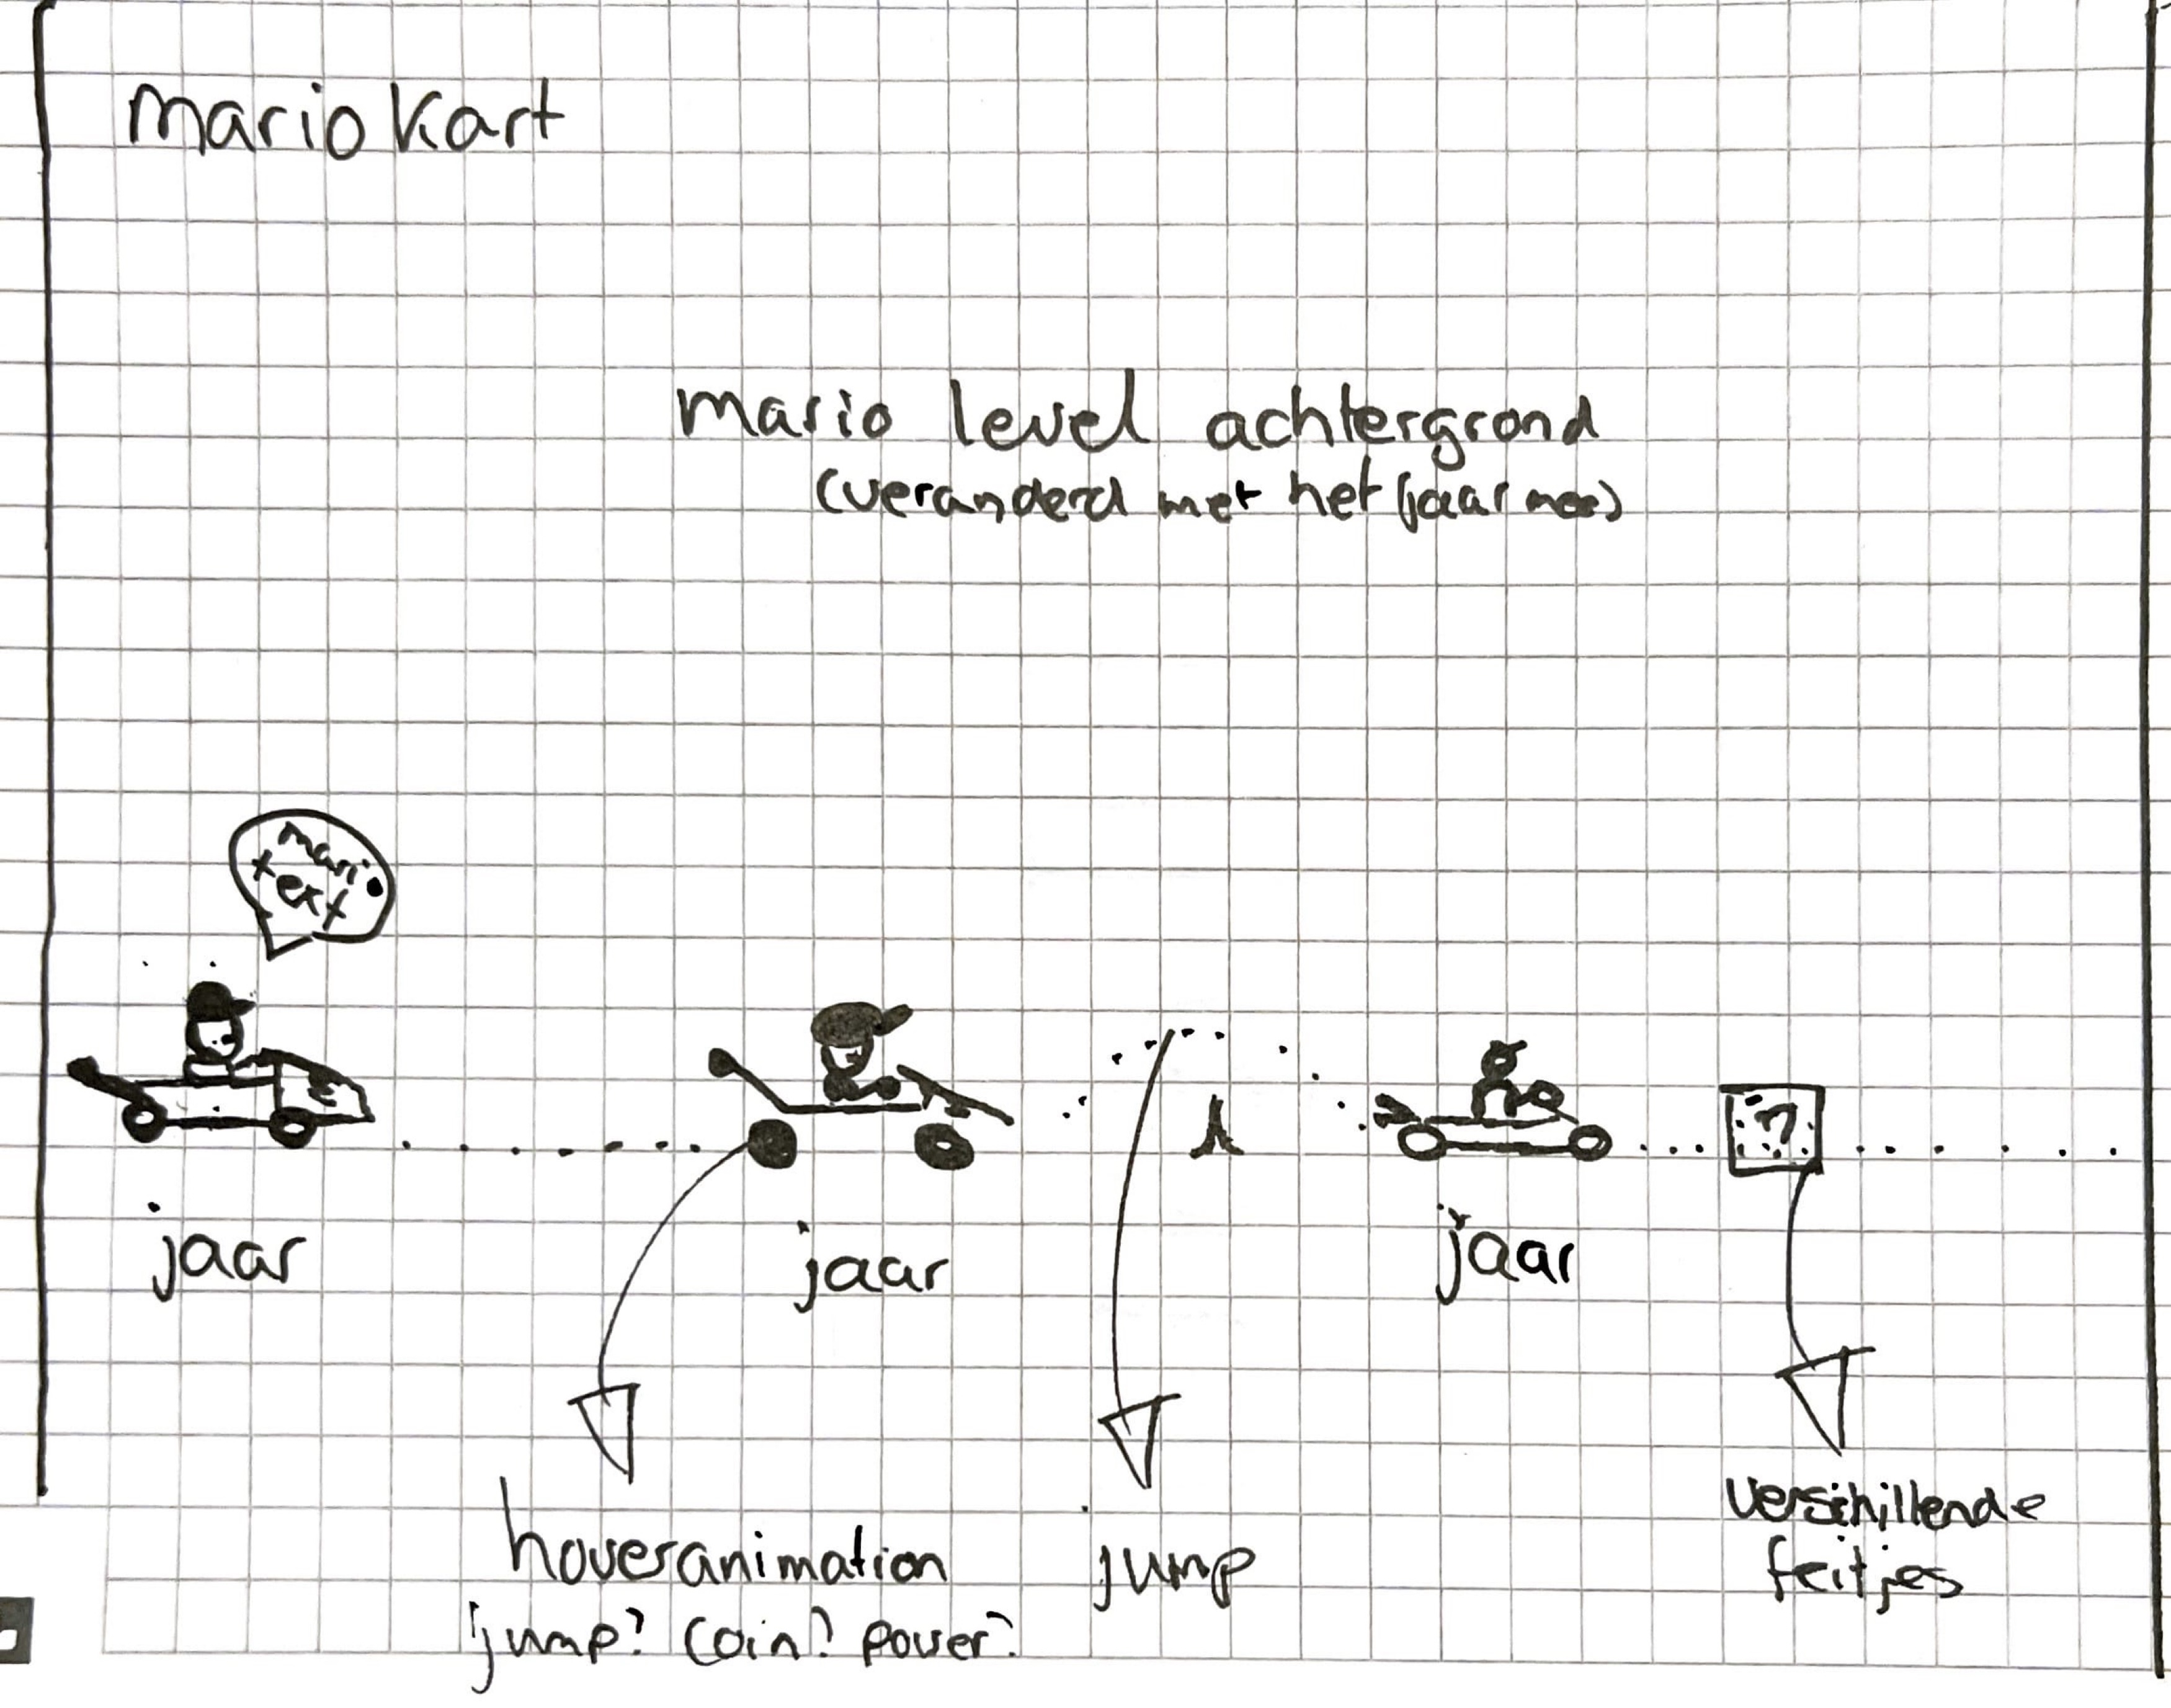 mario Kart
mario level achtergrond
(veranderd met het jaar mee)
mario
text
?
jaar
jaar
jaar
hoveranimation
jump? coin? power?
jump
verschillende
feitjes